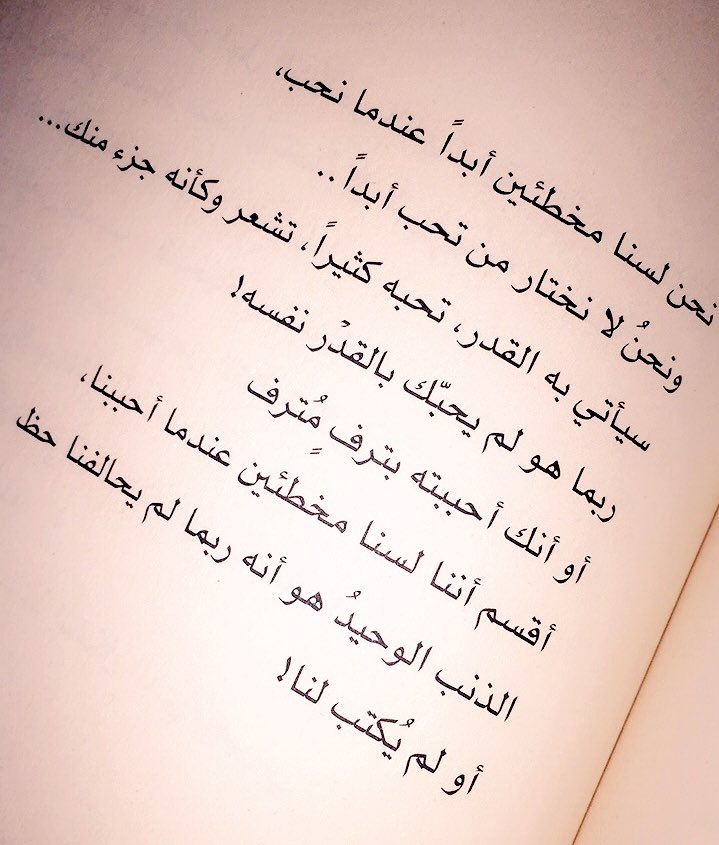 نحن لسنا مخطئين أبداً عندما نحب،
ونحنُ لا نختار من تحب أبداً..
سيأتي به القدر، تحبه كثيراً، تشعر وكأنه جزء منك...
ربما هو لم يحبّك بالقدْر نفسه!
أو أنك أحببته بترف مُترفٍ
أقسم أننا لسنا مخطئين عندما أحببنا،
الذنب الوحيدُ هو أنه ربما لم يحالفنا حظ
أو لم يُكتب لنا!